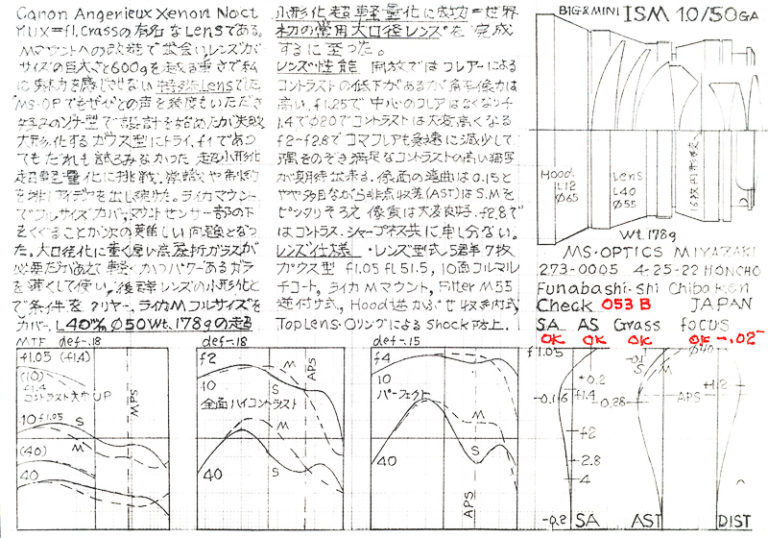 Canon Angenieux Xenon Noct
lux=f1.Crassの有名なLensである。
Mマウントへの改造で出会いレンズが
サイズの巨大さと600gを越る重さで私
に魅力を感じさせない特殊Lensでした
MS-OPでもぜひとの声を幾度もいただき
好みのゾナー型で設計を始めたが失敗
大形化するガウス型にトライ。f1であっ
てもだれも試ろみなかった 超小形化
超軽量化に挑戦。常識や制約
を アイデアを出し続けた。ライカマウント
でフルサイズカバー,マウントセンサー部の下
をくぐることが次の難しい問題となっ
た。大口径化に重く厚い高屈折ガラスが
必要だがあえて軽くかつパワーあるガラ
を薄くして使い,後群レンズの小形化と
で条件をクリヤー、ライカMフルサイズを
カバー。L40% Ø50 Wt.178gの超
小形化 超軽量化に成功=世界
初の常用大口径レンズを完成
するに至った。
レンズ性能 開放ではフレアーによる
コントラストの低下があるが解像力は
高い,f1.25で中心のフレアはなくなりf
1.4でØ20でコントラストは大変高くなる
f2-f2.8でコマフレアも急速に減少して
隅をのぞき満足なコントラストの高い描写
が期待出来る。像面の湾曲は0.15と
やや多目ながら非点収差(AST)はS.Mを
ピッタリそろえ 像質は大変良好。f2.8で
はコントラス.シャープネス共に申し分ない。
レンズ仕様・レンズ型式 5群7枚
ガウス型 f1.05 fL51.5, 10面コルマル
チコート。ライカMマウント, Filter M55
逆付け式, Hoodは逆かぶせ収納式
TopLens・OリングによるShock防止。
BIG&MINI ISM 1.0/50 GA
Hood.
L12
Ø65
Lens
L40
Ø55
16枚円形絞
Wt.178g
MS-OPTICS MIYAZAKI
273-0005 4-25-22 HONCHO
Funabashi-Shi Chiba Ken
Check 053B JAPAN
SA AS Grass focus
OK OK OK OK -.02
MTF def-.18
f1.05 (f1.4)
(10)
f1.4
コントラスト大か UP
10 f1.05
S
M
(40)
40
APS
def-.18
f2
10
全面 ハイコントラスト
M
S
40
APS
def-.15
f4
10
パーフェクト
M
S
40
APS
f1.05
+0.2
-0.16
f1.4
f2
2.8
4
-0.2
SA
-0.1
S
M
-0.28
AST
Ø40
+1.2
APS
DIST